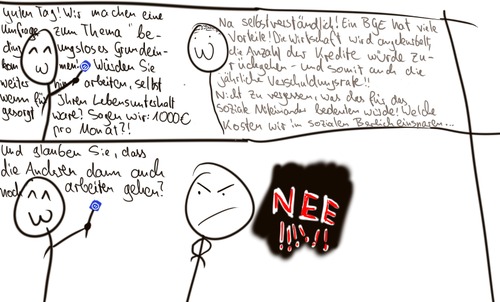 guten Tag! Wir machen eine
Umfrage zum Thema "Be-
dingungsloses Grundein-
kommen". Würden Sie
weiter hin arbeiten, selbst
wenn für Ihren Lebensunterhalt
gesorgt wäre? Sagen wir: 1000€
pro Monat?!
Na selbstverständlich! Ein BGE hat viele
Vorteile! Die Wirtschaft wird angekurbelt,
die Anzahl der Kredite würde zu-
rückgehen - und somit auch die
jährliche Verschuldungsrate!!
Nicht zu vergessen, was das für das
soziale Miteinander bedeuten würde! Welche
Kosten wir im sozialen Bereich einsparen...
Und glauben Sie, dass
die Anderen dann auch
noch arbeiten gehen?
NEE
!!!!!